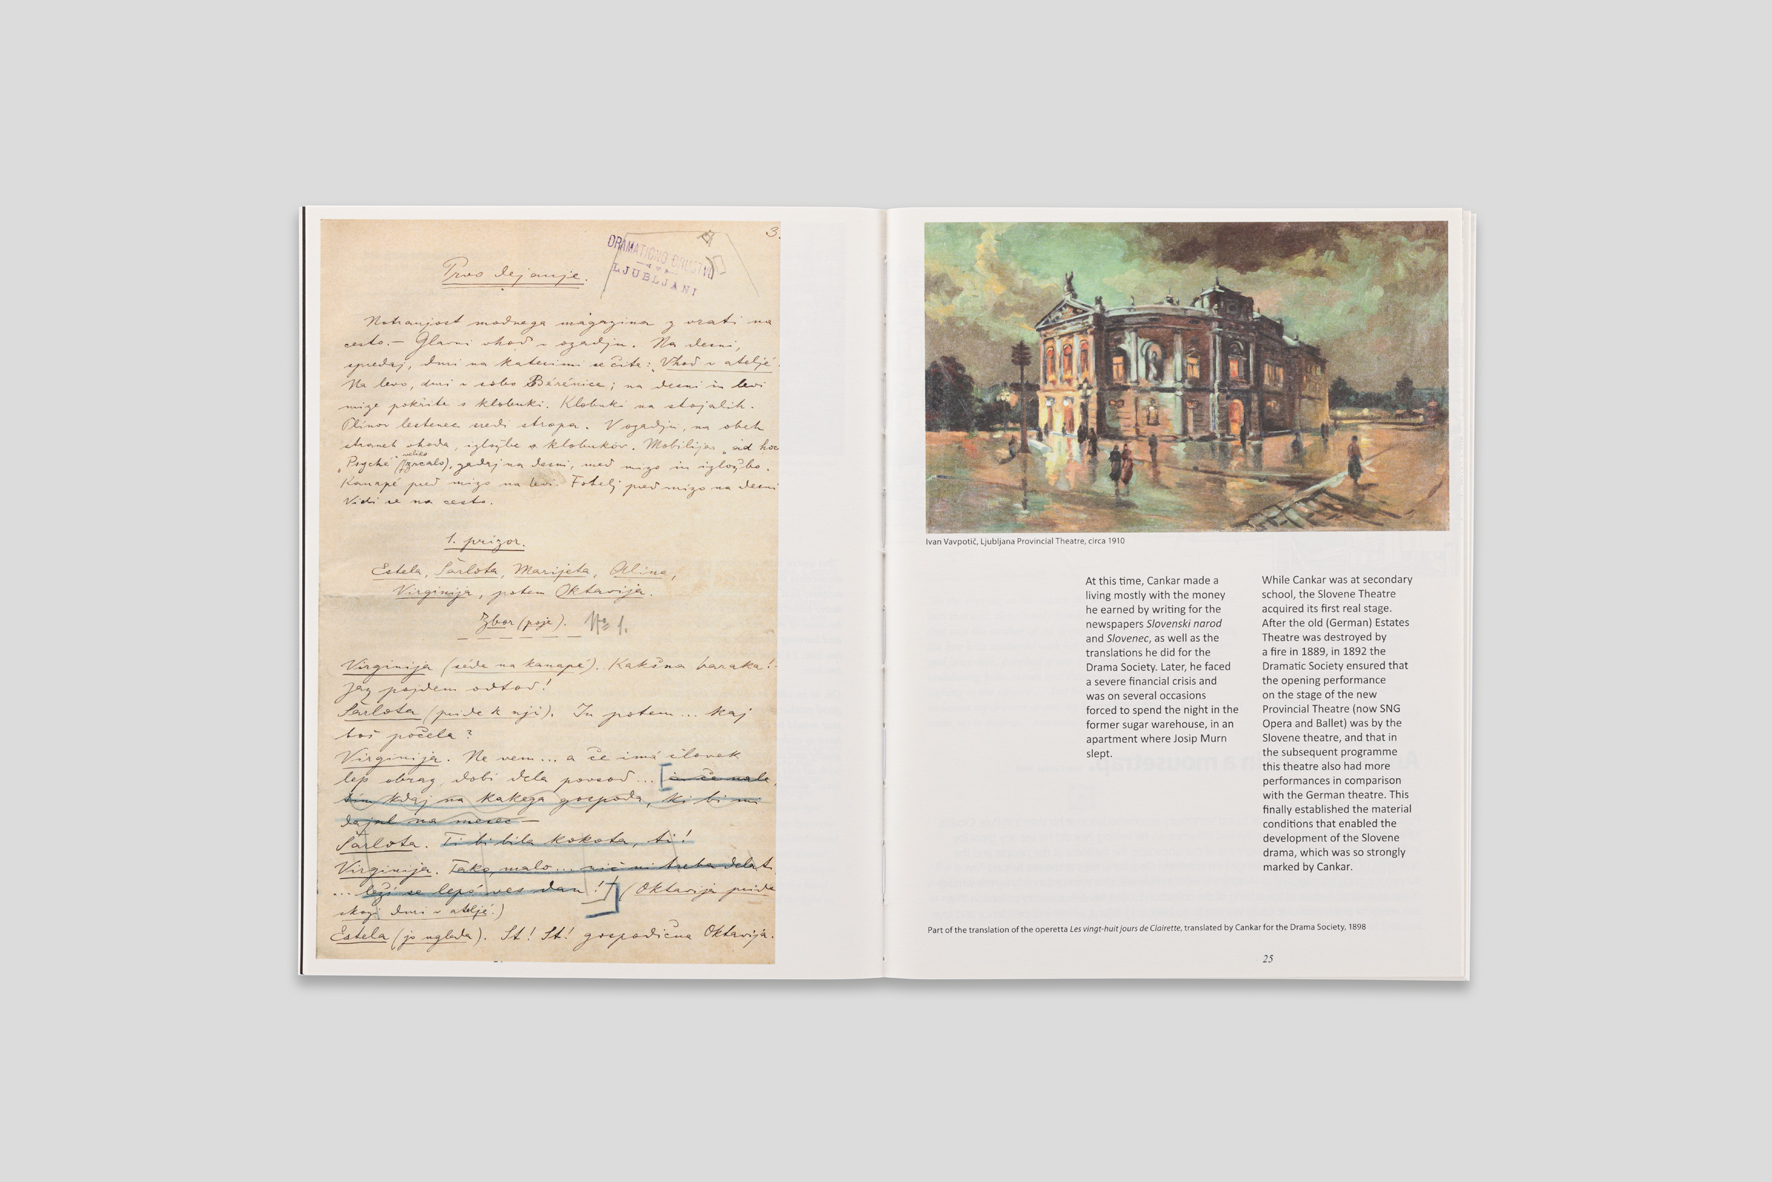 3.
DRAMATIČNO DRUŠTVO
LJUBLJANI
Prvo dejanje.
Notranjost modnega magazina z vrati na
cesto. — Glavni vhod v ozadju. Na desni,
spredaj, duri na katerimi se čita: Vhod v atelje.
Na levo, duri v sobo Bérénice; na desni in levi
mize pokrite s klobuki. Klobuki na stojalih.
lestenec sredi stropa. V ozadju, na obeh
straneh vhoda, izložbe s klobukov. Mobilijar „ad hoc
„Psyché“ (veliko zrcalo), zadaj na desni, med mizo in izložbo.
Kanapé pred mizo na levi. Fotelj pred mizo na desni
Vidi se na cesto.
1. prizor.
Estela, Šarlota, Marijeta, Alina,
Virginija, potem Oktavija.
Zbor (poje). № 1.
Virginija (sede na kanapé). Kakšna baraka!
Jaz pojdem odtod!
Šarlota (pride k nji). In potem... kaj
boš počela?
Virginija. Ne vem... a če ima človek
lep obraz, dobi dela povsod... [in če nale
tim kdaj na kakega gospoda, ki bi mi
dajal na mesec —
Šarlota. Ti bi bila kokota, ti!
Virginija. Tako malo... nič ni treba delat
... leži se lepó ves dan!] (Oktavija pride
skozi duri v atelje.)
Estela (jo ugleda). St! St! gospodična Oktavija.
Ivan Vavpotič, Ljubljana Provincial Theatre, circa 1910
At this time, Cankar made a
living mostly with the money
he earned by writing for the
newspapers Slovenski narod
and Slovenec, as well as the
translations he did for the
Drama Society. Later, he faced
a severe financial crisis and
was on several occasions
forced to spend the night in the
former sugar warehouse, in an
apartment where Josip Murn
slept.
While Cankar was at secondary
school, the Slovene Theatre
acquired its first real stage.
After the old (German) Estates
Theatre was destroyed by
a fire in 1889, in 1892 the
Dramatic Society ensured that
the opening performance
on the stage of the new
Provincial Theatre (now SNG
Opera and Ballet) was by the
Slovene theatre, and that in
the subsequent programme
this theatre also had more
performances in comparison
with the German theatre. This
finally established the material
conditions that enabled the
development of the Slovene
drama, which was so strongly
marked by Cankar.
Part of the translation of the operetta Les vingt-huit jours de Clairette, translated by Cankar for the Drama Society, 1898
25